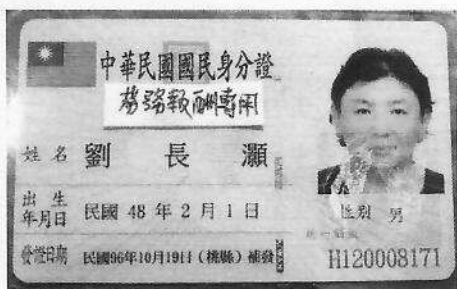 中華民國國民身分證
勞務報酬專用
姓名 劉長灝
出生年月日 民國 48 年 2 月 1 日
性別 男
發證日期 民國96年10月19日(桃縣)補發
H120008171